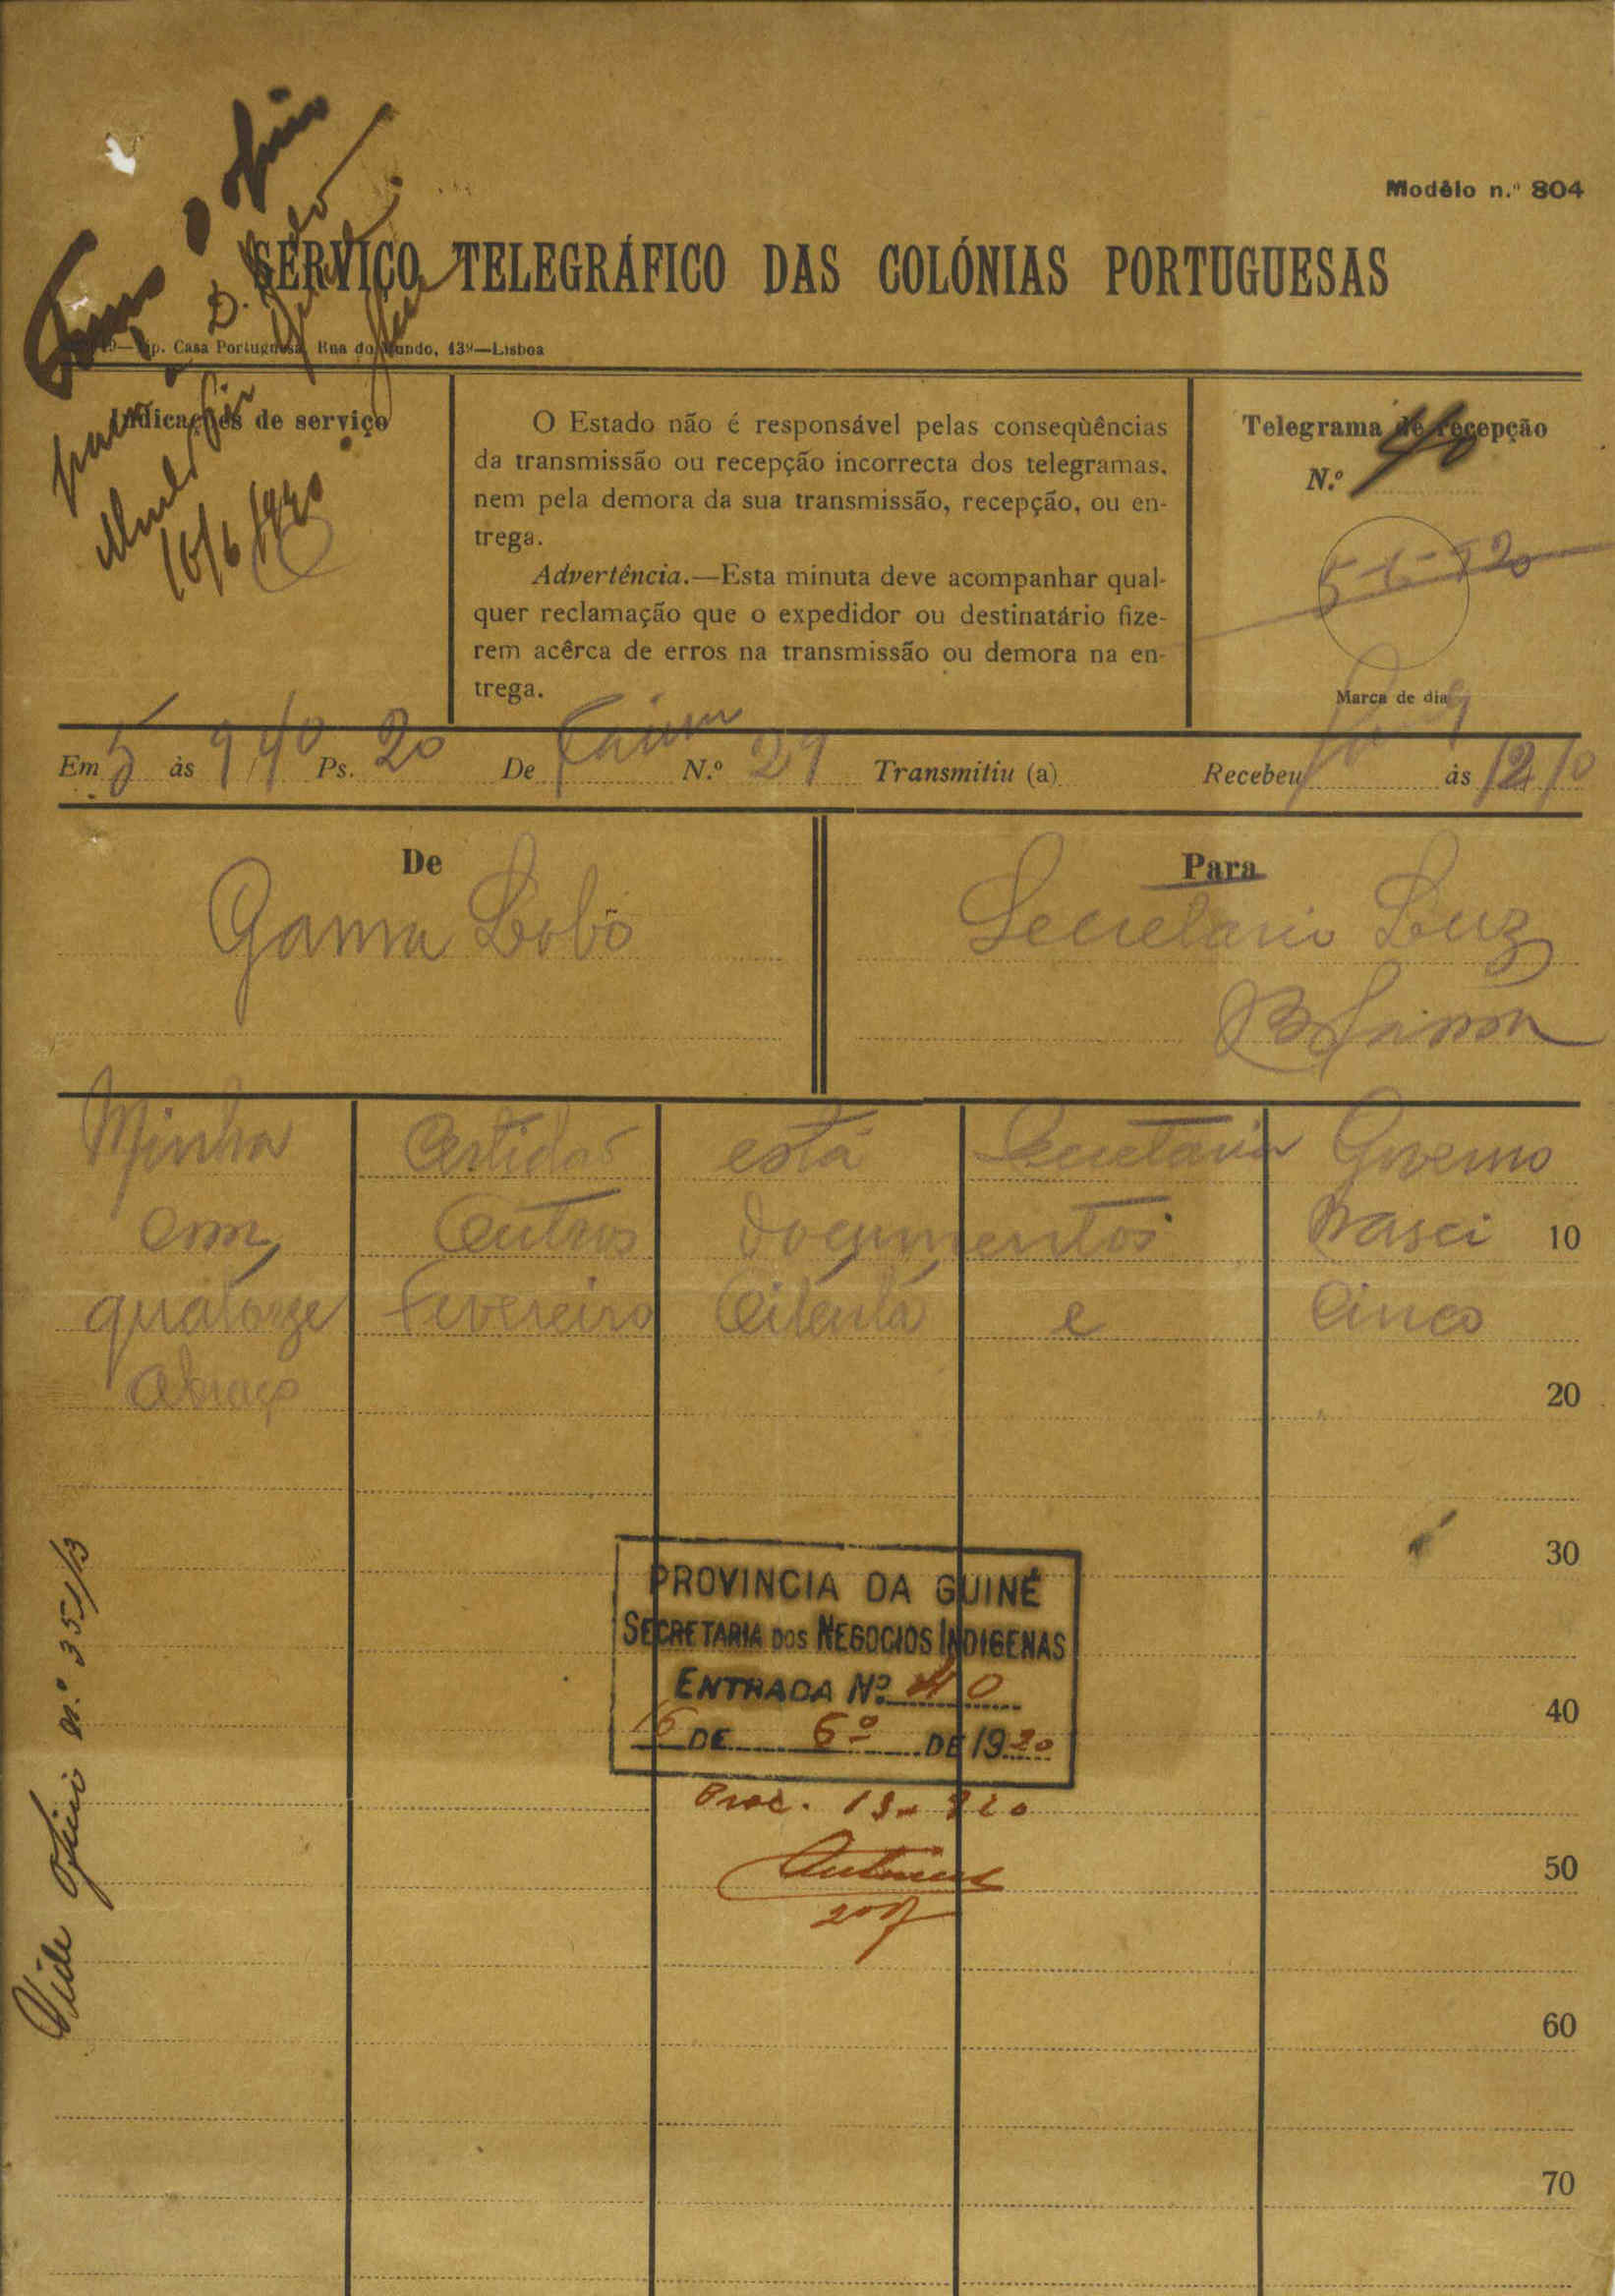 Modêlo n.º 804
SERVIÇO TELEGRÁFICO DAS COLÓNIAS PORTUGUESAS
Tip. Casa Portuguesa, Rua do Mundo, 139—Lisboa
Indicações de serviço
16/6/1920
O Estado não é responsável pelas conseqùências
da transmissão ou recepção incorrecta dos telegramas,
nem pela demora da sua transmissão, recepção, ou en-
trega.
Advertência.—Esta minuta deve acompanhar qual-
quer reclamação que o expedidor ou destinatário fize-
rem acêrca de erros na transmissão ou demora na en-
trega.
Telegrama de recepção
N.º 40
Marca de dia
Em 5 às 9/40 Ps. 20 De N.º 29 Transmitiu (a) Recebeu às 12/10
De
Gama Lobo
Para
Secretario Luz
Minha Certidão está Secretaria Governo
com outros documentos Nasci 10
quatorze Fevereiro oitenta e cinco
abraço 20
30
PROVINCIA DA GUINÉ
SECRETARIA DOS NEGOCIOS INDIGENAS
ENTRADA Nº 40
16 DE 6º DE 1920
Proc.
40
50
60
70
Vide oficio n.º 351/13